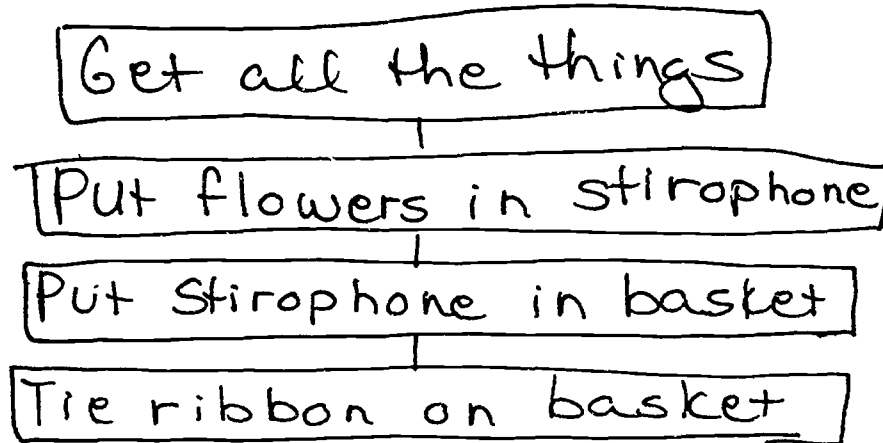 Get all the things
Put flowers in stirophone
Put Stirophone in basket
Tie ribbon on basket